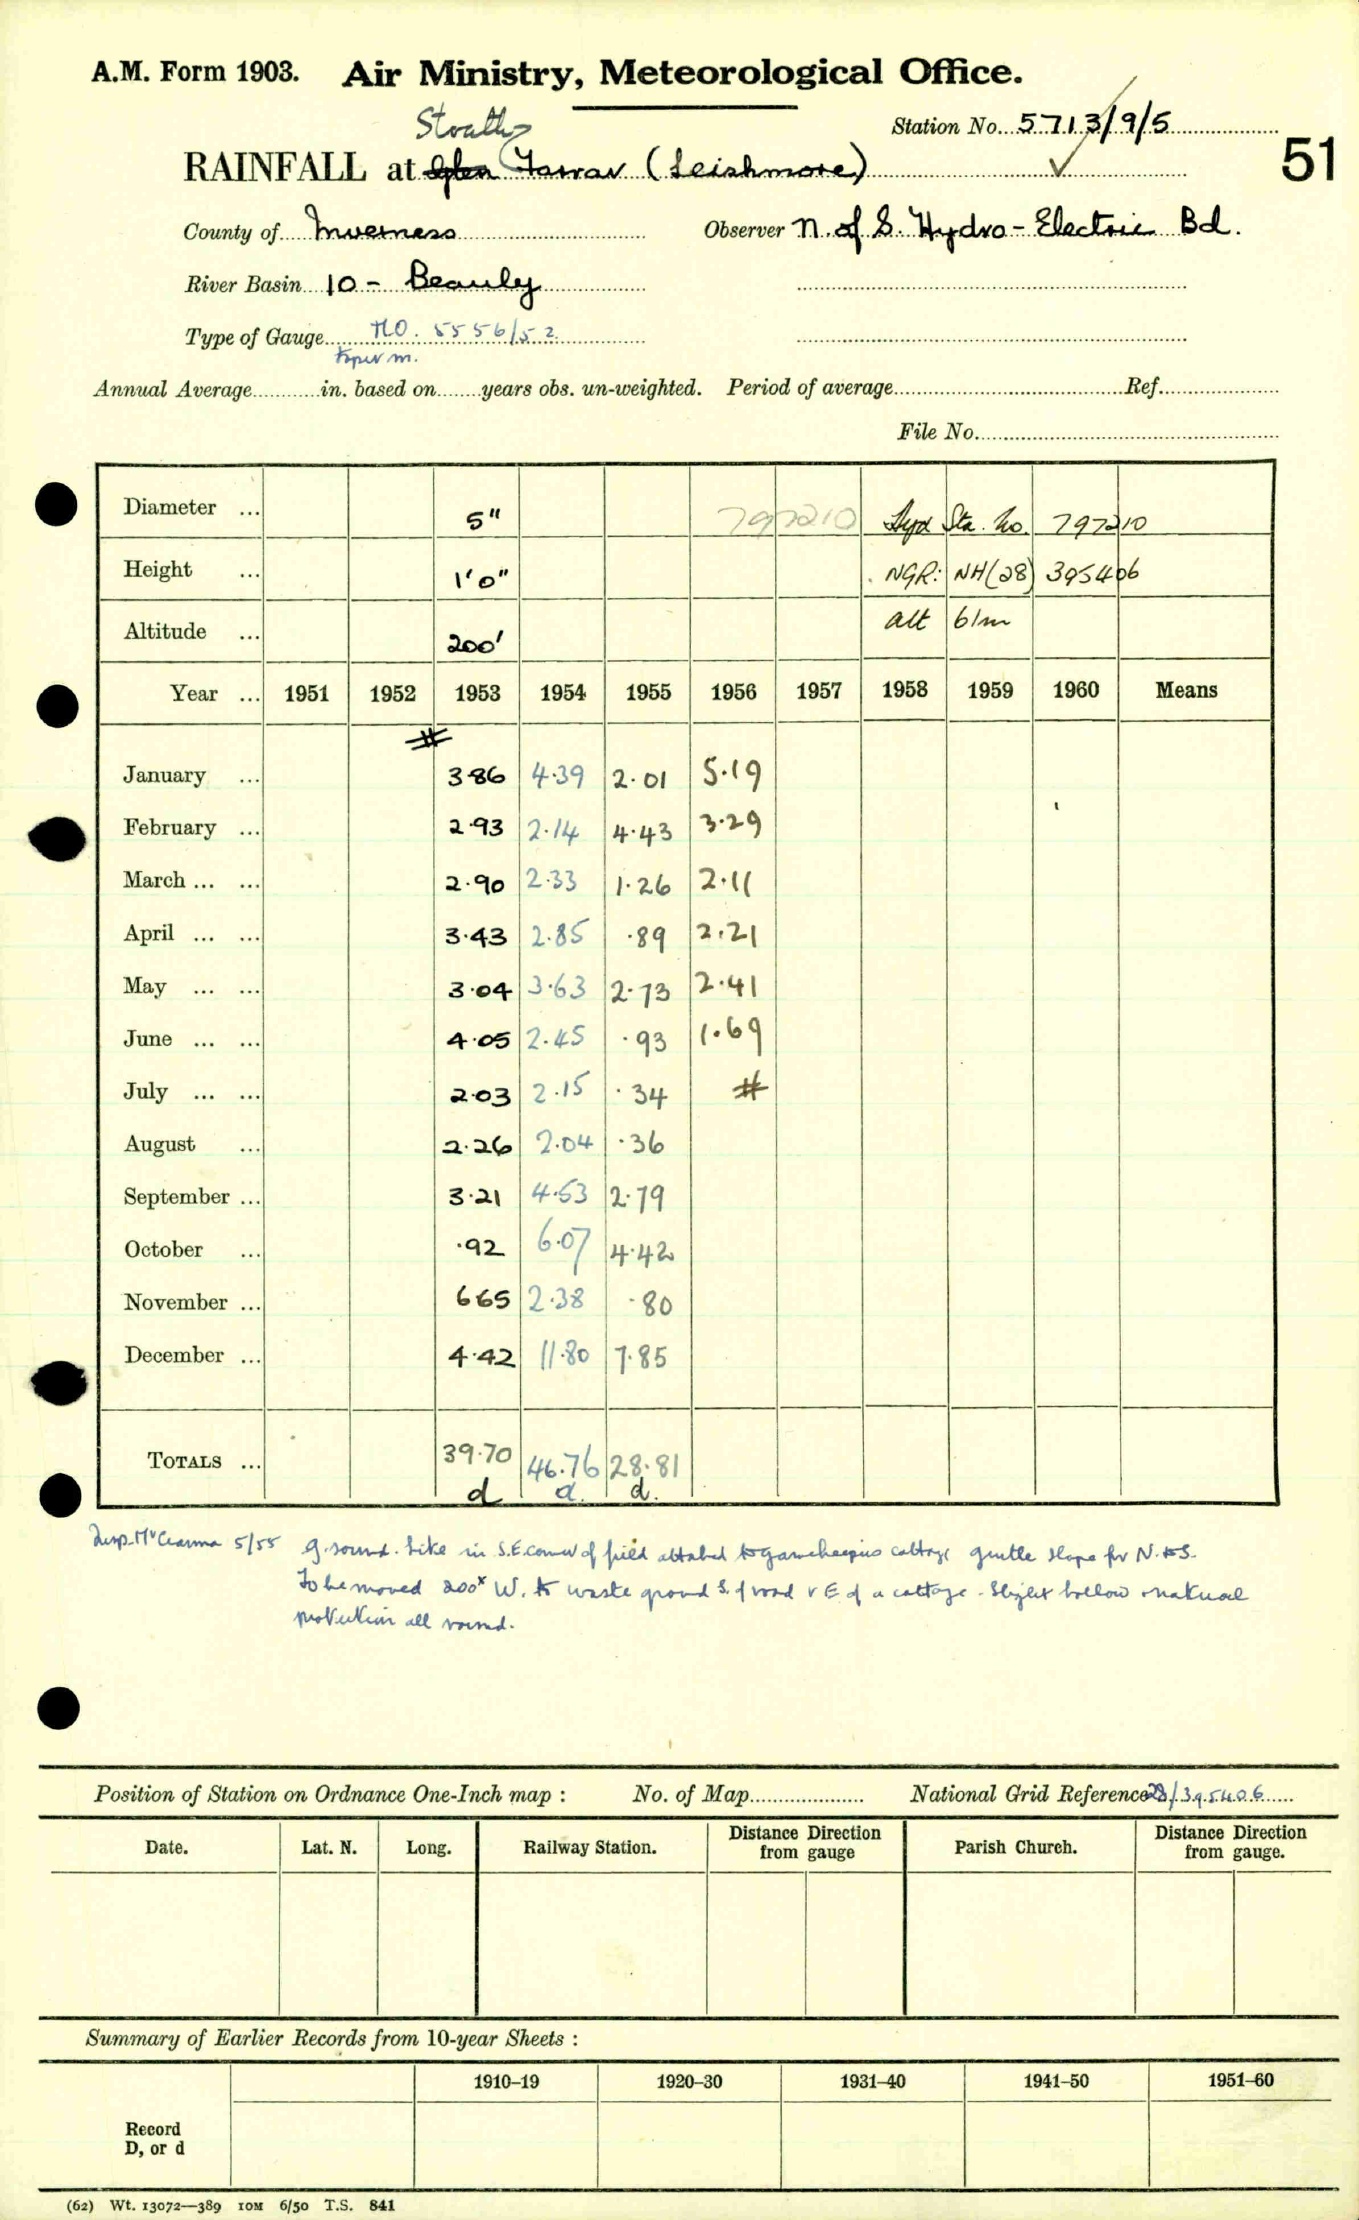 A.M. Form 1903. Air Ministry, Meteorological Office.
Station No. 5713/9/5
Strath
RAINFALL at Glen Farrar (Leishmore) ✓
51
County of Inverness Observer N. of S. Hydro-Electric Bd.
River Basin 10 - Beauly
Type of Gauge MO. 5556/52
Annual Average in. based on years obs. un-weighted. Period of average Ref.
File No.
Diameter ... 5" 797210 Hyd Sta. No. 797210
Height ... 1'0" NGR: NH(28) 395406
Altitude ... 200' alt 61m
Year ... 1951 1952 1953 1954 1955 1956 1957 1958 1959 1960 Means
#
January ... 3.86 4.39 2.01 5.19
February ... 2.93 2.14 4.43 3.29
March ... ... 2.90 2.33 1.26 2.11
April ... ... 3.43 2.85 .89 2.21
May ... ... 3.04 3.63 2.73 2.41
June ... ... 4.05 2.45 .93 1.69
July ... ... 2.03 2.15 .34 #
August ... 2.26 2.04 .36
September ... 3.21 4.53 2.79
October ... .92 6.07 4.42
November ... 6.65 2.38 .80
December ... 4.42 11.80 7.85
TOTALS ... 39.70 46.76 28.81
d d. d.
5/55 G. sound. Site in S.E. corner of field attached to gamekeepers cottage gentle slope for N. to S.
To be moved 200x W. to waste ground S. of road & E of a cottage. Slight hollow natural
protection all round.
Position of Station on Ordnance One-Inch map : No. of Map National Grid Reference 28/395406
Date. Lat. N. Long. Railway Station. Distance from Direction gauge Parish Church. Distance from Direction gauge.
Summary of Earlier Records from 10-year Sheets :
1910–19 1920–30 1931–40 1941–50 1951–60
Record
D, or d
(62) Wt. 13072—389 10M 6/50 T.S. 841